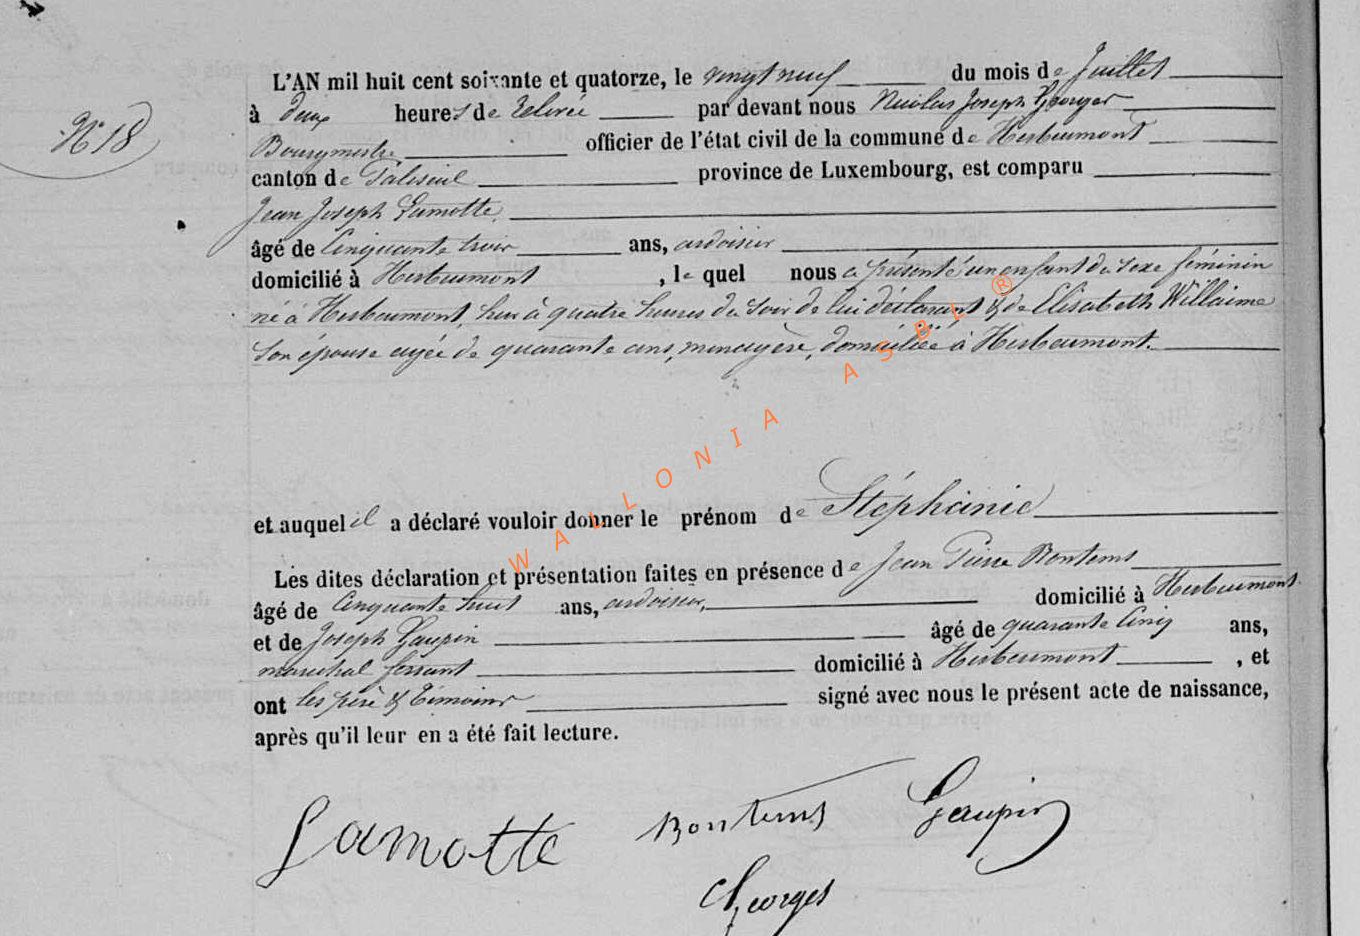 L'AN mil huit cent soixante et quatorze, le vingt neuf du mois de Juillet
à deux heures de relevée par devant nous Nicolas Joseph Georges
N° 18
Bourgmestre officier de l'état civil de la commune de Herbeumont
canton de Paliseul province de Luxembourg, est comparu
Jean Joseph Lamotte,
âgé de Cinquante trois ans, ardoisier
domicilié à Herbeumont, le quel nous a présenté un enfant du sexe féminin
né à Herbeumont, hier à quatre heures du soir de lui déclarant & de Elisabeth Willaime
son épouse agée de quarante ans, ménagère, domiciliée à Herbeumont.
WALLONIA ASBL ®
et auquel il a déclaré vouloir donner le prénom de Stéphanie
Les dites déclaration et présentation faites en présence de Jean Pierre Bontems
âgé de Cinquante huit ans, ardoisier, domicilié à Herbeumont
et de Joseph Gaupin âgé de quarante Cinq ans,
maréchal ferrant domicilié à Herbeumont, et
ont les père & témoins signé avec nous le présent acte de naissance,
après qu'il leur en a été fait lecture.
Lamotte Bontems Gaupin
Georges